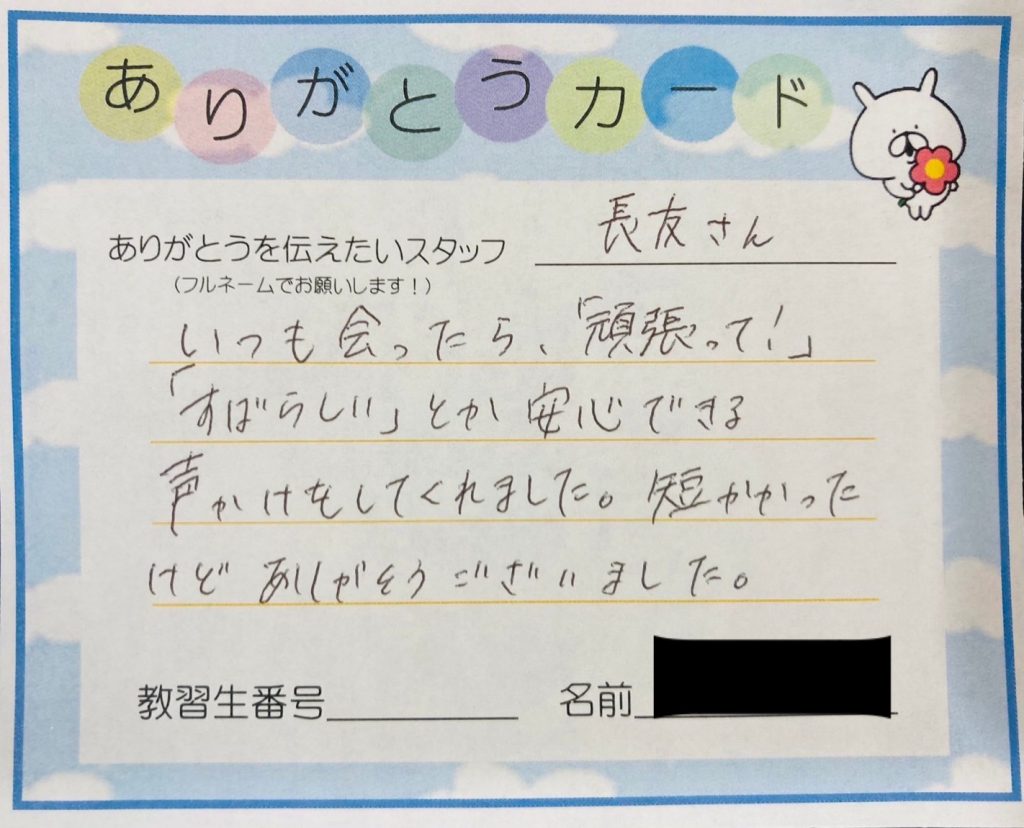 ありがとうカード
ありがとうを伝えたいスタッフ 長友さん
(フルネームでお願いします!)
いつも会ったら、「頑張って!」
「すばらしい」とか安心できる
声かけをしてくれました。短かかった
けどありがとうございました。
教習生番号 名前